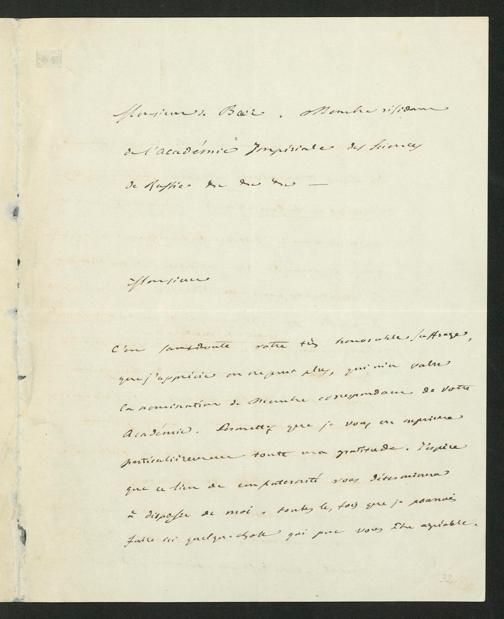 Monsieur de Baër, Membre résidant
de l'académie Impériale des Sciences
de Russie &c &c &c —
Monsieur
C'est sans doute votre très honorable suffrage,
que j'apprécie on ne peut plus, qui m'a valu
la nomination de Membre correspondant de votre
Académie. Permettez que je vous en exprime
particulièrement toute ma gratitude. J'espère
que ce lien de confraternité vous déterminera
à disposer de moi, toutes les fois que je pourrais
faire ici quelque chose qui put vous être agréable.
32